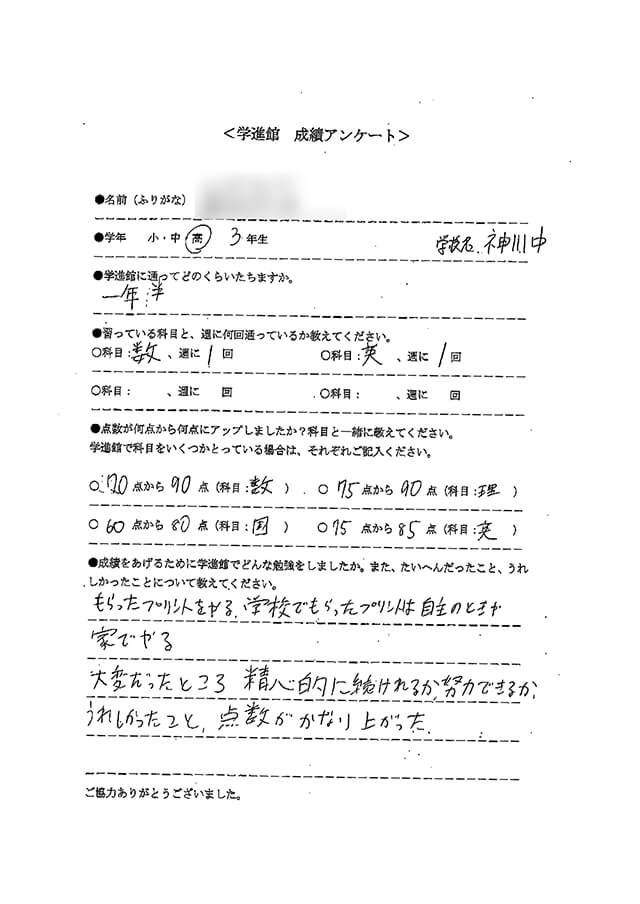 ＜学進館　成績アンケート＞
●名前（ふりがな）
●学年　小・中・高　3年生　学校名、神川中
●学進館に通ってどのくらいたちますか。
一年半
●習っている科目と、週に何回通っているか教えてください。
○科目：数、週に1回　○科目：英、週に1回
○科目：　、週に　回　○科目：　、週に　回
●点数が何点から何点にアップしましたか？科目と一緒に教えてください。
学進館で科目をいくつかとっている場合は、それぞれご記入ください。
○70点から90点（科目：数）．○75点から90点（科目：理）
○60点から80点（科目：国）○75点から85点（科目：英）
●成績をあげるために学進館でどんな勉強をしましたか。また、たいへんだったこと、うれ
しかったことについて教えてください。
もらったプリントをやる、学校でもらったプリントは自主のときか
家でやる
大変だったところ 精心的に続けれるか、努力できるか、
うれしかったこと、点数がかなり上がった、
ご協力ありがとうございました。